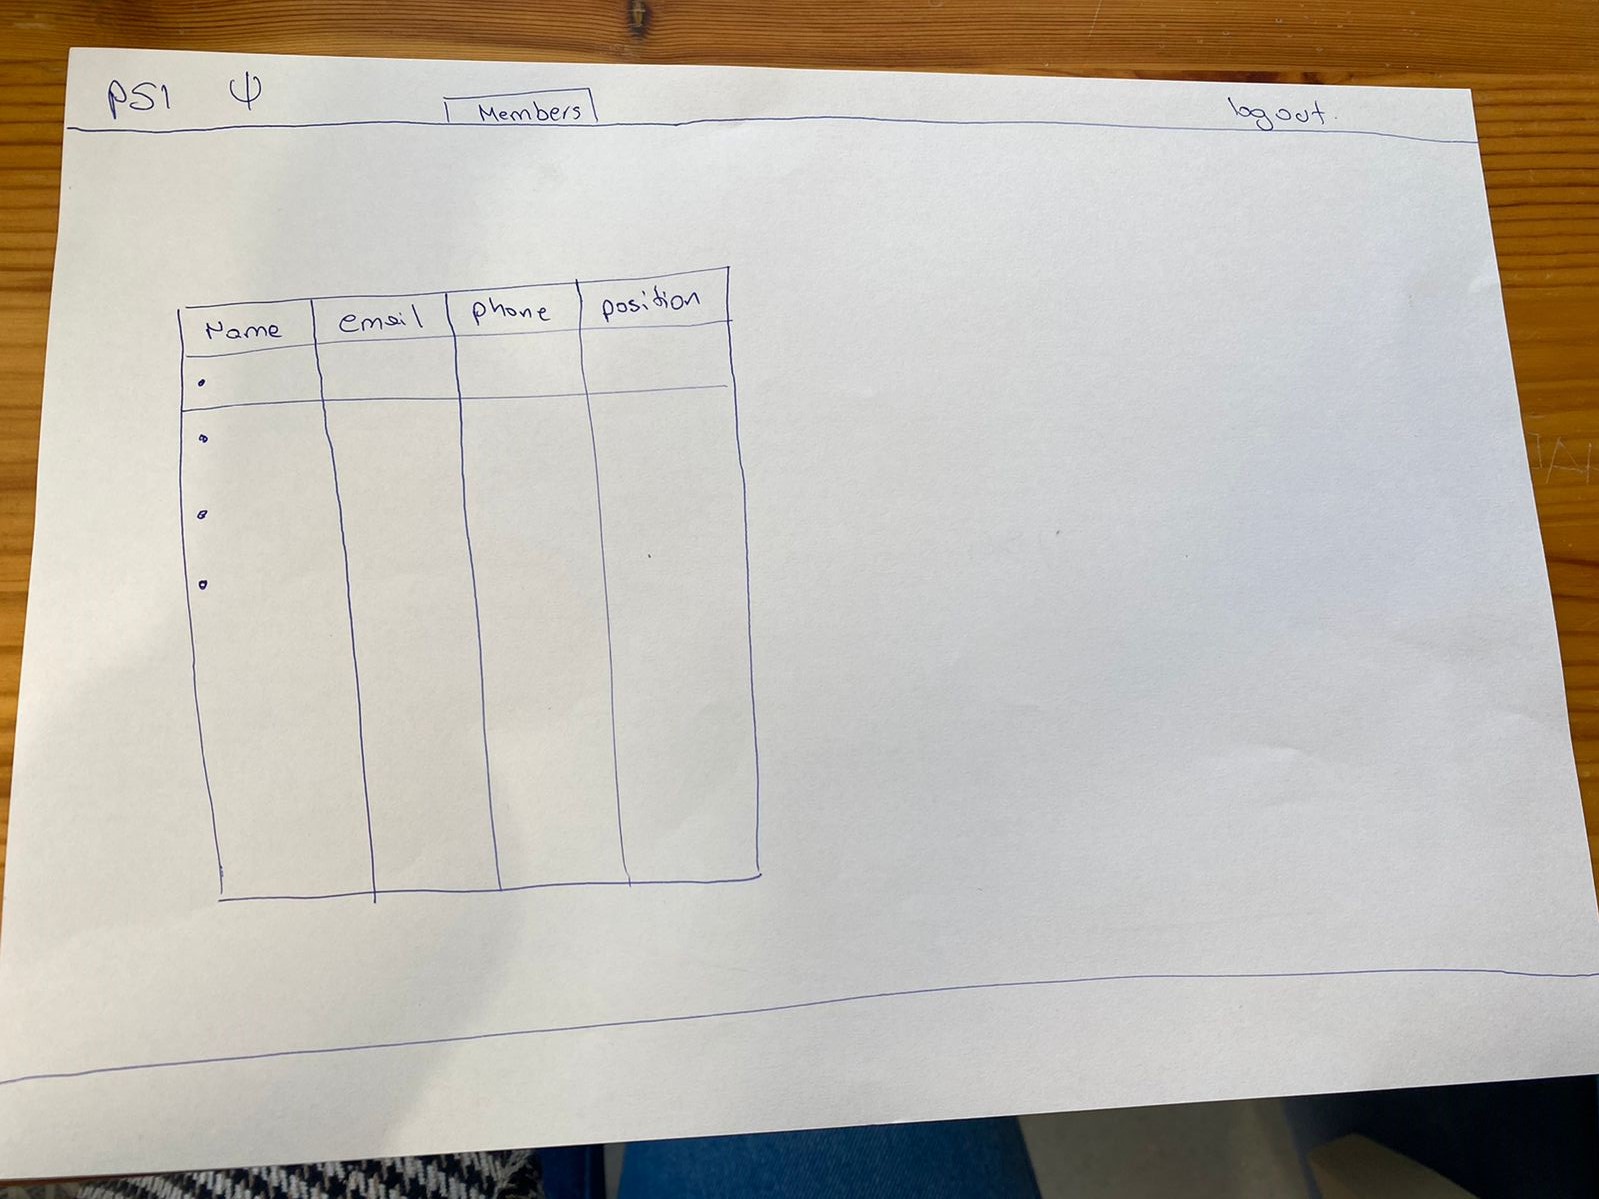 PSI ψ Members logout.
Name email phone position